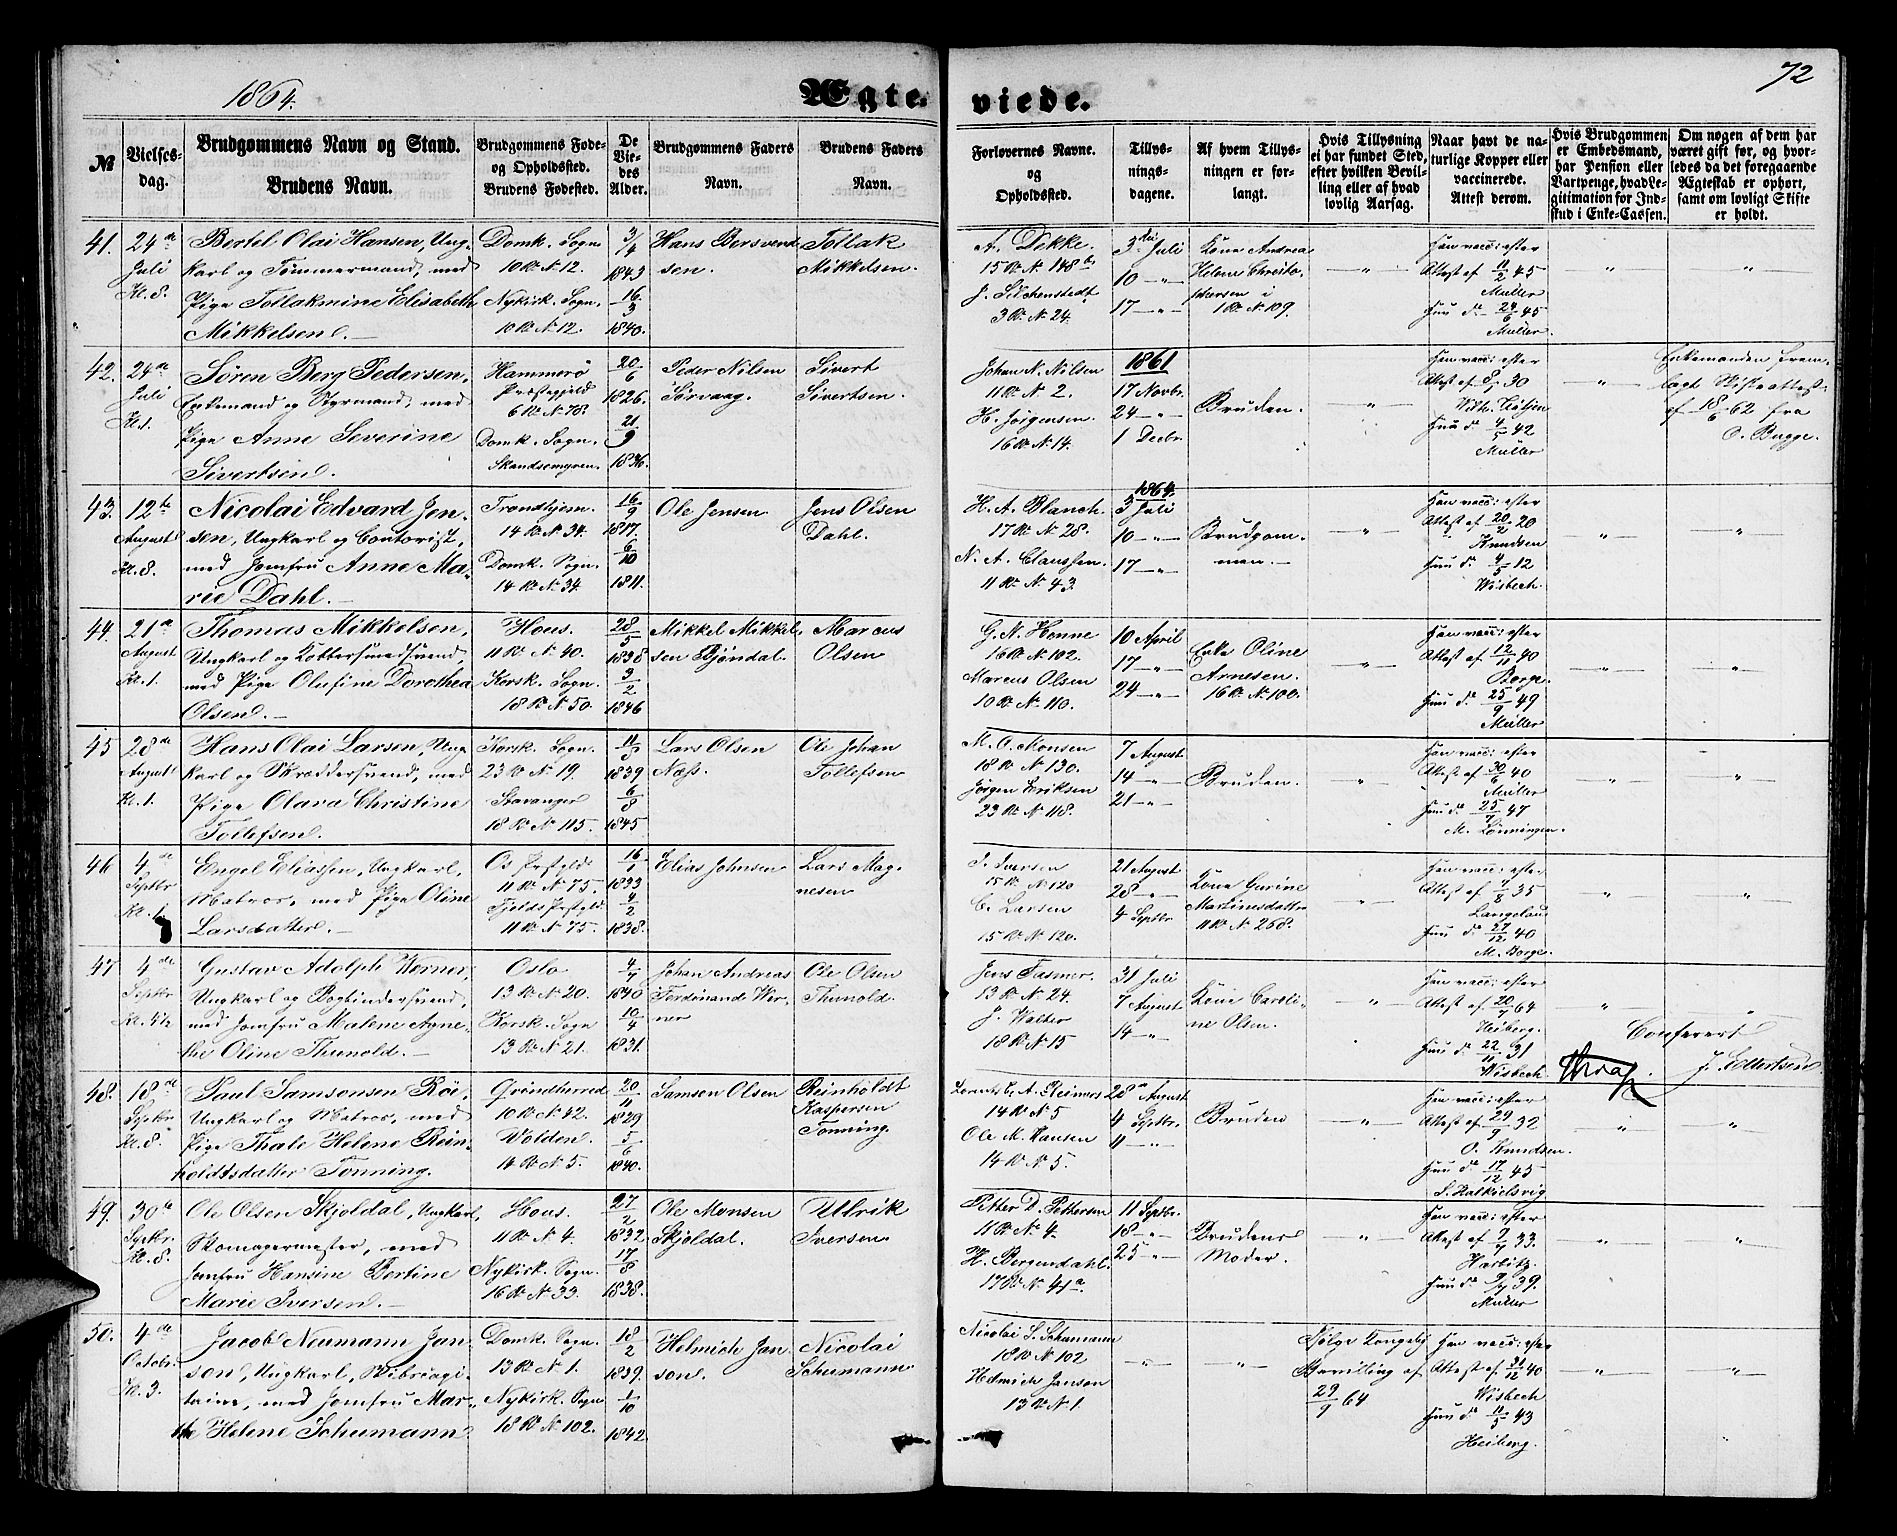 1864.
Ægte-
viede.
72
No
Vielses-
dag.
Brudgommens Navn og Stand.
Brudens Navn.
Brudgommens Føde-
og Opholdssted.
Brudens Fødested.
De
Vie-
des
Alder.
Brudgommens Faders
Navn.
Brudens Faders
Navn.
Forlovernes Navne.
og
Opholdssted.
Tillys-
nings-
dagene.
Af hvem Tillys-
ningen er for-
langt.
Hvis Tillysning
ei har fundet Sted,
efter hvilken Bevil-
ling eller af hvad
lovlig Aarsag.
Naar havt de na-
turlige Kopper eller
vaccinerede.
Attest derom.
Hvis Brudgommen
er Embedsmand,
har Pension eller
Vartpenge, hvad Le-
gitimation for Ind-
skud i Enke-Cassen.
Om nogen af dem har
været gift før, og hvor-
ledes da det foregaaende
Ægteskab er ophørt,
samt om lovligt Skifte
er holdt.
41.
24de
Juli
Kl. 8.
Bertel Olai Hansen, Ung-
karl og Tømmermand, med
Pige Tollakmine Elisabeth
Mikkelsen.
Domk. Sogn
10 R. N. 12.
Nykirk. Sogn.
10 R. N. 12.
3/4
1843
16/3
1840.
Hans Bersvend-
sen.
Tollak
Mikkelsen.
A. Dekke.
15 R. N. 148 b
3 R. N. 24.
3die Juli
10 -"-
17 -"-
Kone Andrea
Helene Christo-
phersen i
1 R. N. 109.
-"-
Han vacc: efter
Attest af 11/2 45
Müller
Hun do 24/6 45
Müller.
"
"
42.
24de
Juli
Kl. 1.
Søren Berg Pedersen,
Enkemand og Styrmand, med
Pige Anne Severine
Sivertsen.
Hammerø
Præstegjeld
6 R. N. 78.
Domk. Sogn.
Skandsemyren.
20/6
1826.
21/9
1836.
Peder Nilsen
Sørvaag.
Sivert
Sivertsen.
Johan N. Nilsen
11 R. N. 2.
H. Jørgensen.
16 R. N. 14.
1861
17 Novbr.
24 -"-
1 Decbr.
Bruden.
-"-
Han vacc: efter
Hun do 4/5 42
Müller
-"-
Enkemanden frem-
lagt Skifteattest
af 18/6 62 fra
O. Bugge.
43.
12te
August
Kl. 8.
Nicolai Edvard Jen-
sen, Ungkarl og Contorist,
med Jomfru Anne Ma-
rie Dahl.
Trondhjem.
14 R. N. 34.
Domk. Sogn.
14 R. N. 34.
16/9
1817.
6/10
1811.
Ole Jensen
Jens Olsen
Dahl.
H. A. Blanch.
17 R. N. 28.
N. A. Claussen.
11 R. N. 43.
1864.
3 Juli
10 -"-
17 -"-
Brudgom-
men.
-"-
Han vacc: efter
Attest af 20/2 20
Knudsen
Hun do 4/5 12
Wisbech.
-"-
-"-
44.
21de
August
Kl. 1.
Thomas Mikkelsen,
Ungkarl og Kobbersmedsvend,
med Pige Olufine Dorothea
Olsen.
Hous.
11 R. N. 40.
Korsk. Sogn.
18 R. N. 50.
28/5
1838
3/2
1846
Mikkel Mikkel-
sen Bjøndal.
Marcus
Olsen
G. N. Honne
16 R. N. 102.
Marcus Olsen
10 R. N. 110.
10 April
17 -"-
24 -"-
Enke Oline
Arnesen.
16 R. N. 100.
-"-
Han vacc: efter
Attest af 12/11 40
Borge.
Hun do 25/9 49
Müller
-"-
"
45
28de
August
Kl. 1.
Hans Olai Larsen, Ung-
karl og Skræddersvend, med
Pige Olava Christine
Tollefsen.
Korsk. Sogn.
23 R. N. 19.
Stavanger
18 R. N. 115.
1839
6/8
1845
Lars Olsen
Næss.
Ole Johan
Tollefsen
M. O. Monsen
18 R. N. 130.
Jørgen Eriksen
23 R. N. 118.
7 August
14 -"-
21 -"-
Bruden.
"
Han vacc: efter
Attest af 30/6 40
Müller
Hun do 25/7 47
M. Lønningen.
"
"
46
4de
Septbr
Kl. 1
Engel Eliassen, Ungkarl,
Matros, med Pige Oline
Larsdatter.
Os Præstgjeld
11 R. N. 75.
Fjelds Præstgjeld
11 R. N. 75.
16/1
1833
4/2
1838.
Elias Johnsen
Lars Mag-
nesen
I. Iversen
15 R. N. 120
C. Larsen
15 R. N. 120.
21 August
28 -"-
4 Septbr.
Kone Gurine
Martinesdatter
11 R. N. 268.
-"-
Han vacc: efter
Attest af 7/8 35
Hun do 27/12 40
M. Borge.
"
"
47
4de
Septbr
Kl. 4½
Gustav Adolph Werner,
Ungkarl og Bogbindersvend,
med Jomfru Malene Agne-
the Oline Thunold.
Oslo
13 R. N. 20.
Korsk. Sogn
13 R. N. 21.
4/7
1840
10/4
1831.
Johan Andreas
Ferdinande Wer-
ner
Ole Olsen
Thunold.
Jens Fasmer.
13 R. N. 24.
J. Walter
18 R. N. 15
31 Juli
7 August
14 -"-
Kone Caroli-
ne Olsen.
-"-
Han vacc: efter
Attest af 20/7 64
Heiberg.
Hun do 22/11 31
Wisbech.
"
"
Confereret
48.
18de
Septbr
Kl. 8.
Paul Samsonsen Röi
Ungkarl og Matros, med
Pige Thale Helene Rein-
holdtsdatter Tonning.
Qvindherred
10 R. N. 42.
Volden.
14 R. N. 5.
20/11
1829
5/6
1840.
Samson Olsen
Reinholdt
Kaspersen
Tonning.
14 R. N. 5
Ole M. Hansen
14 R. N. 5.
28 August
4 Septbr.
11 -"-
Bruden
-"-
Han vacc: efter
Attest af 29/9 32
O. Knudsen.
Hun do 17/12 45
"
-"-
49.
30te
Septbr.
Kl. 8.
Ole Olsen Skjoldal, Ungkarl,
Skomagermester, med
Jomfru Hansine Bertine
Marie Iversen.
Hous.
11 R. N. 4.
Nykirk. Sogn.
16 R. N. 33.
27/2
1832.
17/8
1838.
Ole Monsen
Skjoldal.
Ulrik
Iversen
Petter D. Pettersen
11 R. N. 4.
H. Bergendahl.
17 R. N. 41a.
11 Septbr.
18 -"-
25 -"-
Brudens
Moder.
"
Han vacc: efter
Attest af 9/7 33.
Harbitz.
Hun do 9/7 39.
Müller
-"-
"
50.
4de
Octobr.
Kl. 3.
Jacob Neumann Jan-
son, Ungkarl, Skibscapi-
taine, med Jomfru Mar-
the Helene Schumann.
Domk. Sogn.
13 R. N. 1.
Nykirk. Sogn
18 R. N. 102.
18/2
1839.
1/10
1842.
Helmich Jan-
son.
Nicolai
Schumann
Nicolai S. Schumann
18 R. N. 102
Helmich Janson
13 R. N. 1.
-"-
-"-
Ifølge Kongelig
Bevilling af
29/9 64
Han vacc: efter
Attest af 31/12 40
Wisbech
Hun do 11/5 43
Heiberg.
-"-
-"-